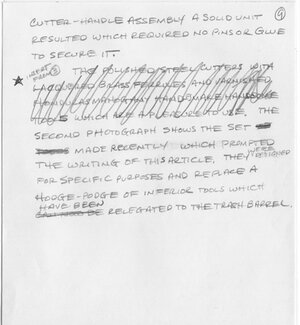 9
CUTTER-HANDLE ASSEMBLY A SOLID UNIT
RESULTED WHICH REQUIRED NO PINS OR GLUE
TO SECURE IT.
INSERT FROM 8
THE POLISHED STEEL CUTTERS WITH
LACQUERED BRASS FERRULES AND VARNISHED
HONDURAS MAHOGANY HANDLES MAKE HANDSOME
TOOLS WHICH ARE A PLEASURE TO USE. THE
SECOND PHOTOGRAPH SHOWS THE SET
MADE RECENTLY WHICH PROMPTED
THE WRITING OF THIS ARTICLE. THEY WERE DESIGNED
FOR SPECIFIC PURPOSES AND REPLACE A
HODGE-PODGE OF INFERIOR TOOLS WHICH
HAVE BEEN
RELEGATED TO THE TRASH BARREL.